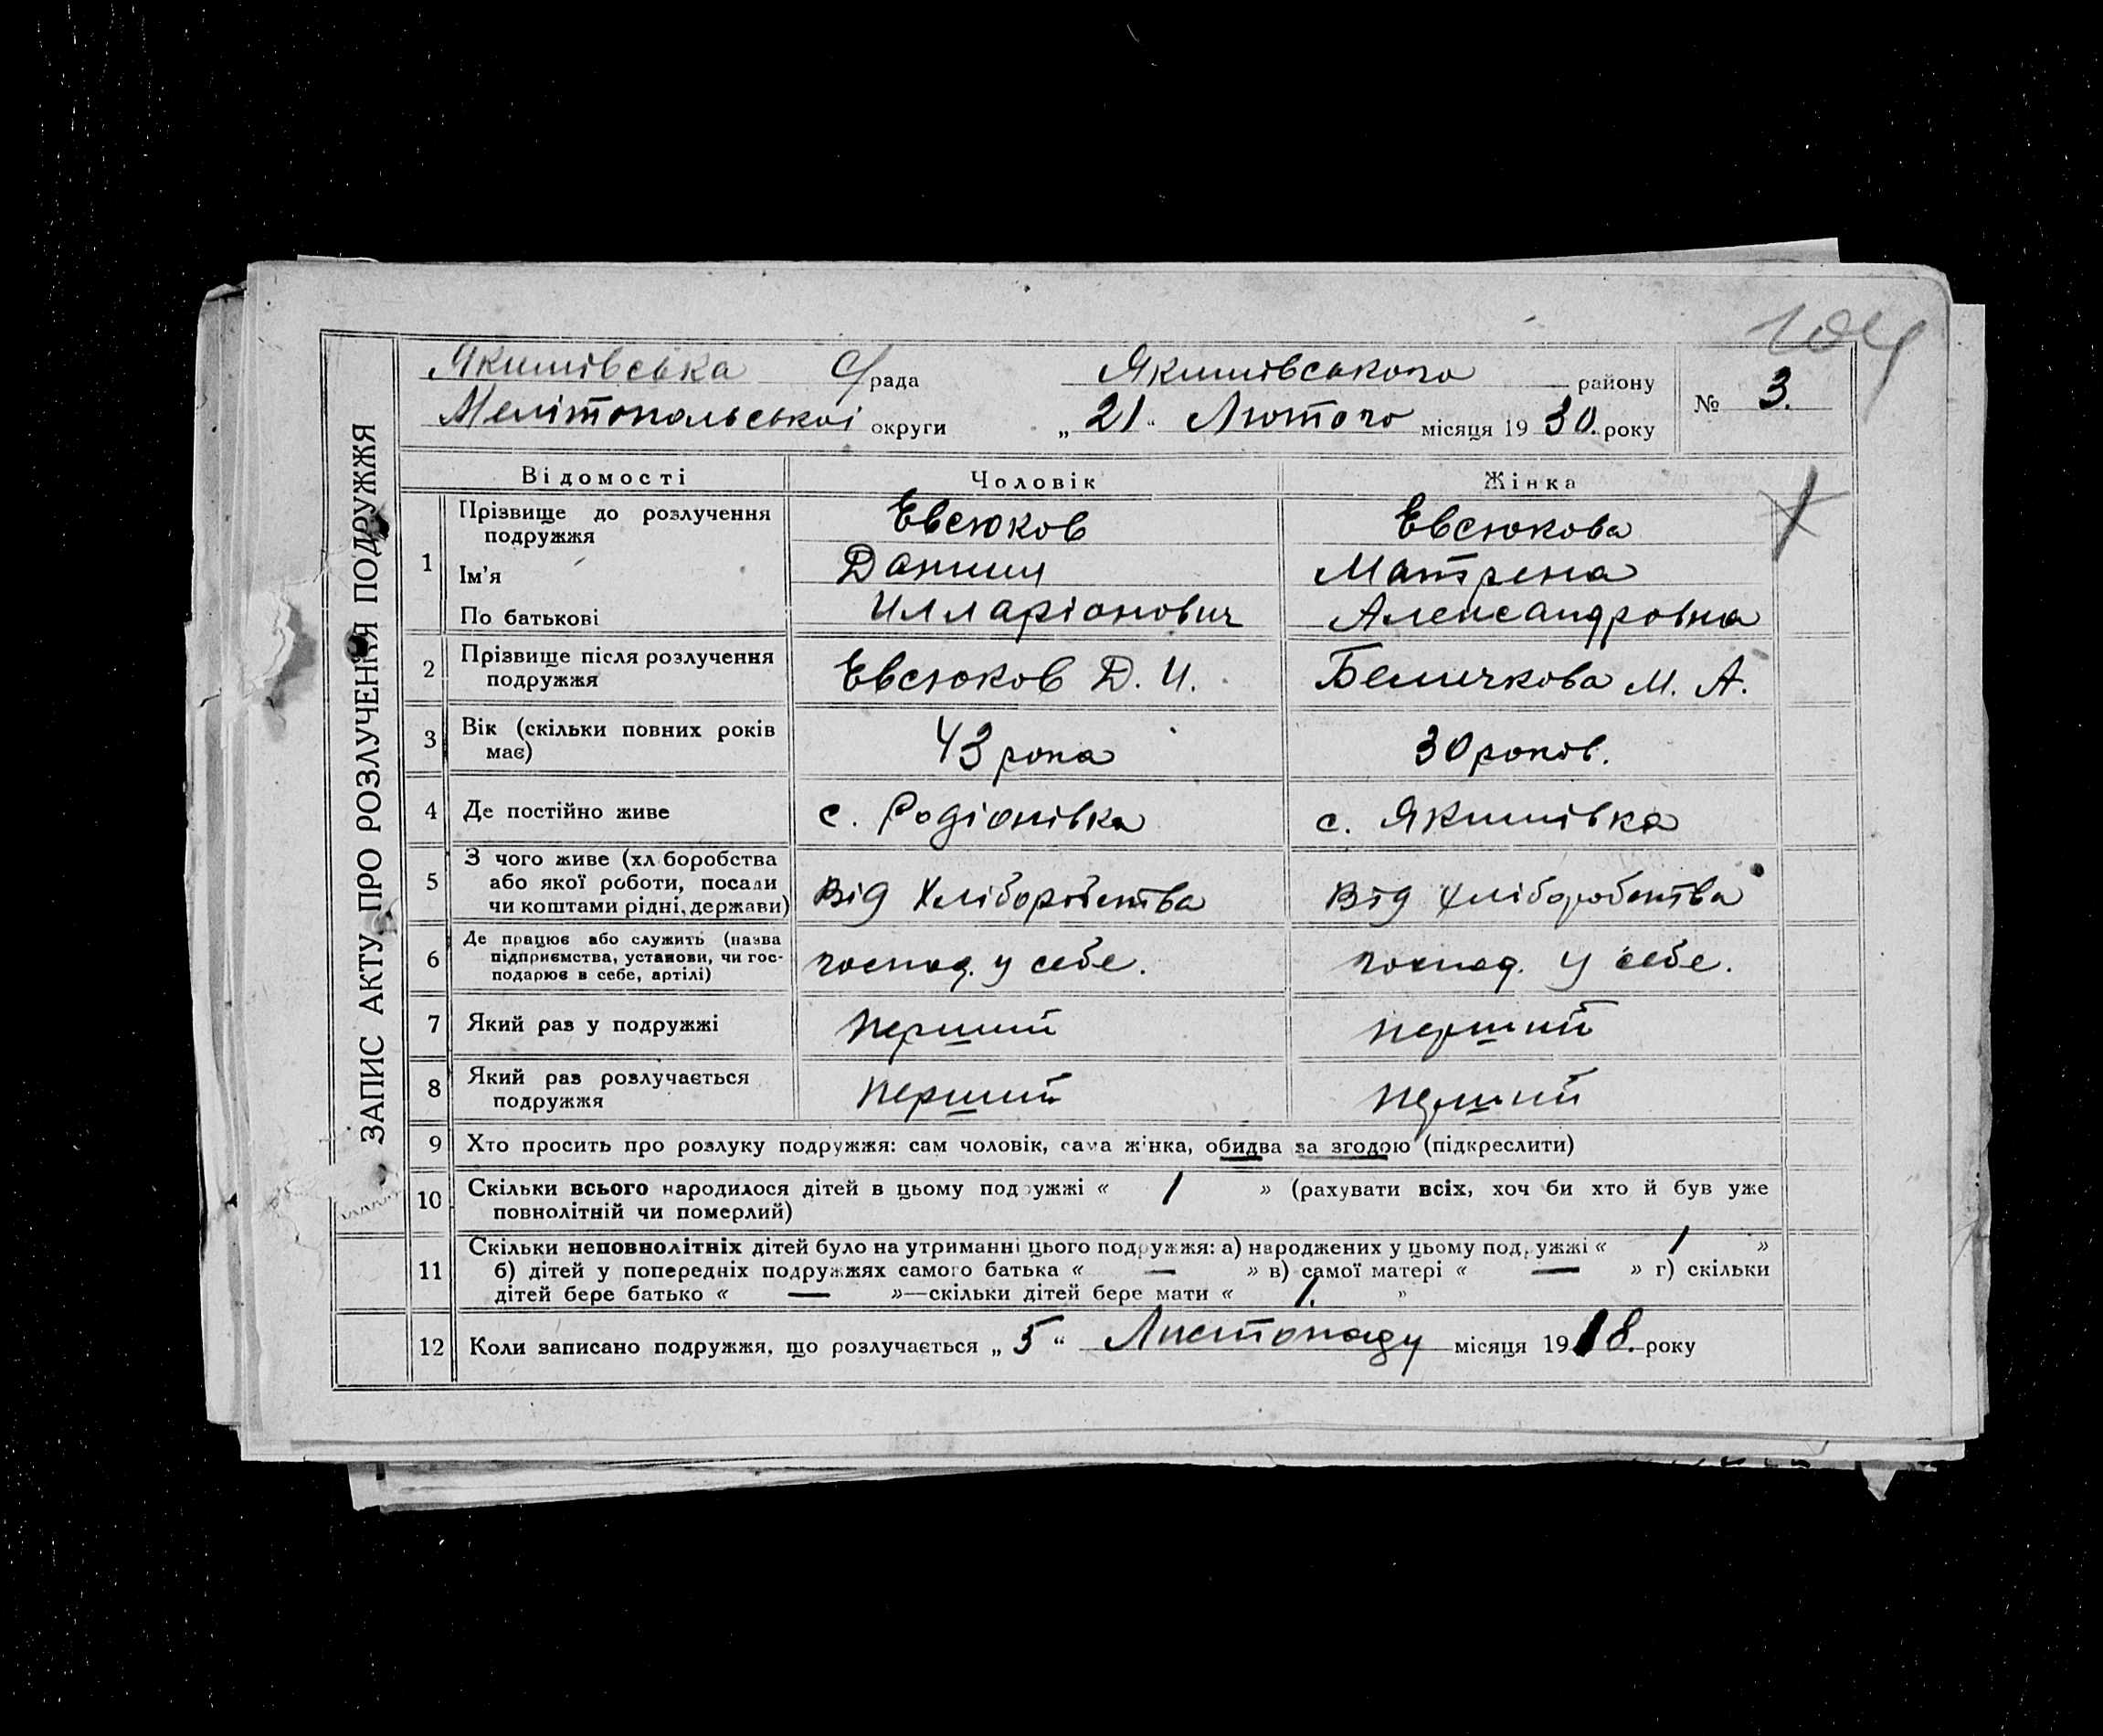 104
ЗАПИС АКТУ ПРО РОЗЛУЧЕННЯ ПОДРУЖЖЯ
Якимівська С/рада Якимівського району
№ 3.
Мелітопольської округи „ 21 “ Лютого місяця 19 30. року
Відомості Чоловік Жінка
1 Прізвище до розлучення подружжя Евсюков Евсюкова
Ім'я Данил Матрена
По батькові Илларіонович Александровна
2 Прізвище після розлучення подружжя Евсюков Д. И. Беличкова М. А.
3 Вік (скільки повних років має) 43 рока 30 років.
4 Де постійно живе с. Родіонівка с. Якимівка
5 З чого живе (хл боробства або якої роботи, посади чи коштами рідні, держави) Від Хліборобства Від хліборобства
6 Де працює або служить (назва підприємства, установи, чи господарює в себе, артілі) господ. у себе. господ. у себе.
7 Який раз у подружжі перший перший
8 Який раз розлучається подружжя перший перший
9 Хто просить про розлуку подружжя: сам чоловік, сама жінка, обидва за згодою (підкреслити)
10 Скільки всього народилося дітей в цьому подружжі « 1 » (рахувати всіх, хоч би хто й був уже
повнолітній чи померлий)
11 Скільки неповнолітніх дітей було на утриманні цього подружжя: а) народжених у цьому подружжі « 1 »
б) дітей у попередніх подружжях самого батька « — » в) самої матері « — » г) скільки
дітей бере батько « — »—скільки дітей бере мати « 1. »
12 Коли записано подружжя, що розлучається „ 5 “ Листопаду місяця 19 18. року